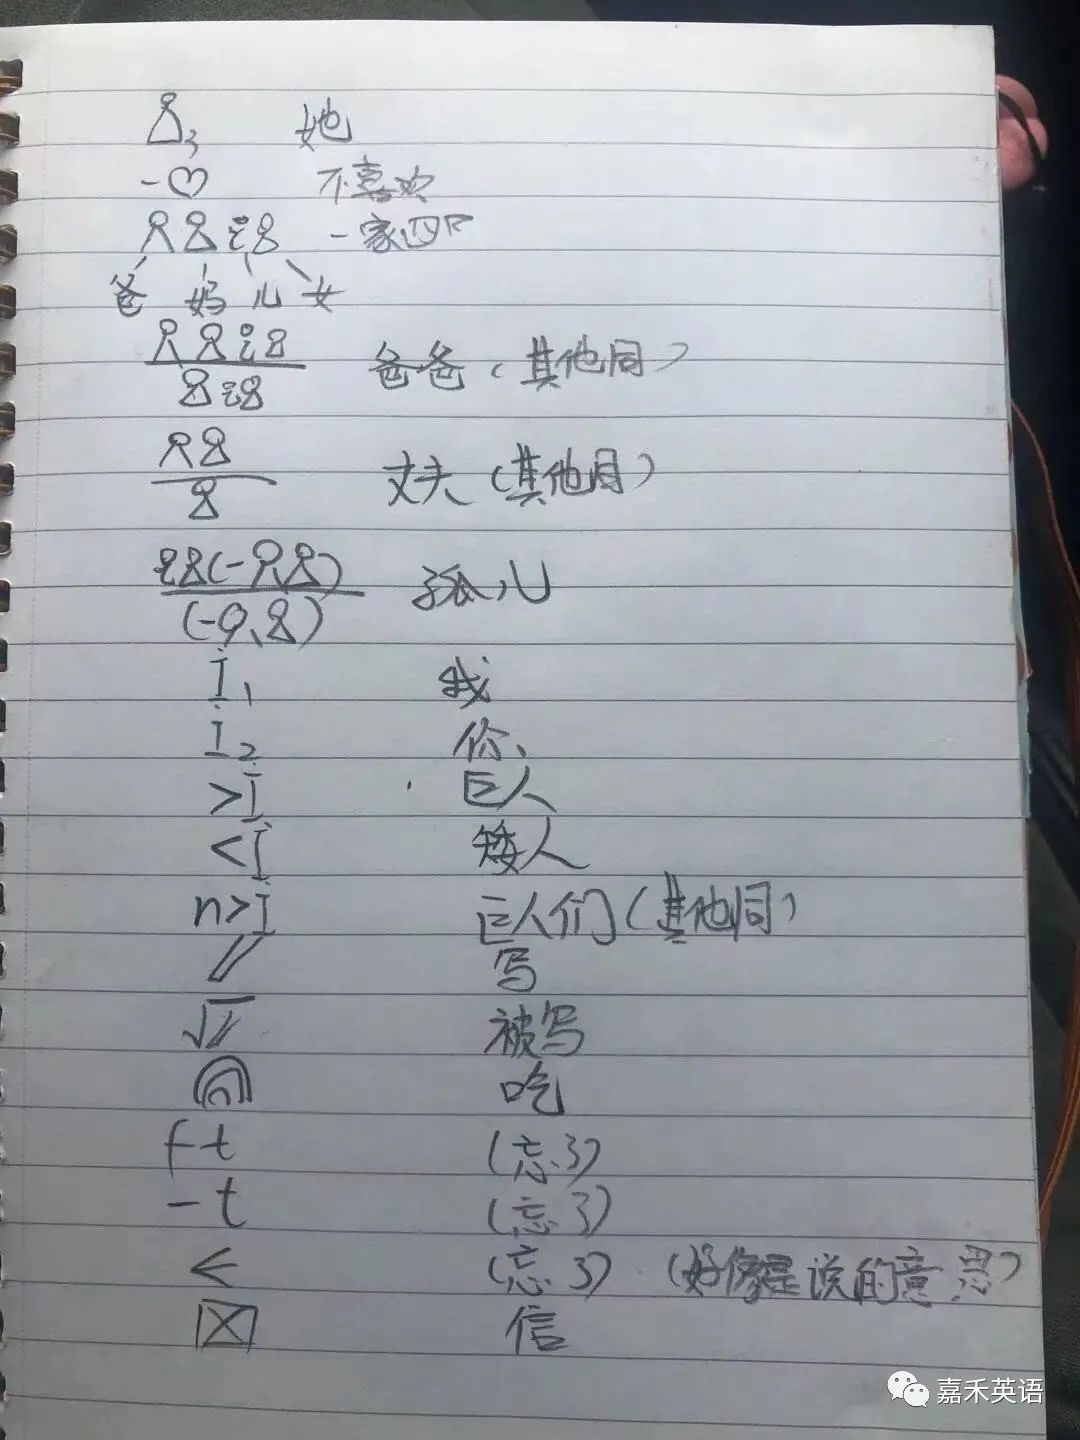 3 她
-♡ 不喜欢
一家四口
爸 妈 儿 女
爸爸(其他同)
丈夫(其他同)
(- ) 孤儿
(- )
I1 我
I2 你、
>I 巨人
<I 矮人
n>I 巨人们(其他同)
// 写
√// 被写
吃
ft (忘了)
-t (忘了)
< (忘了) (好像是说的意思)
信
嘉禾英语